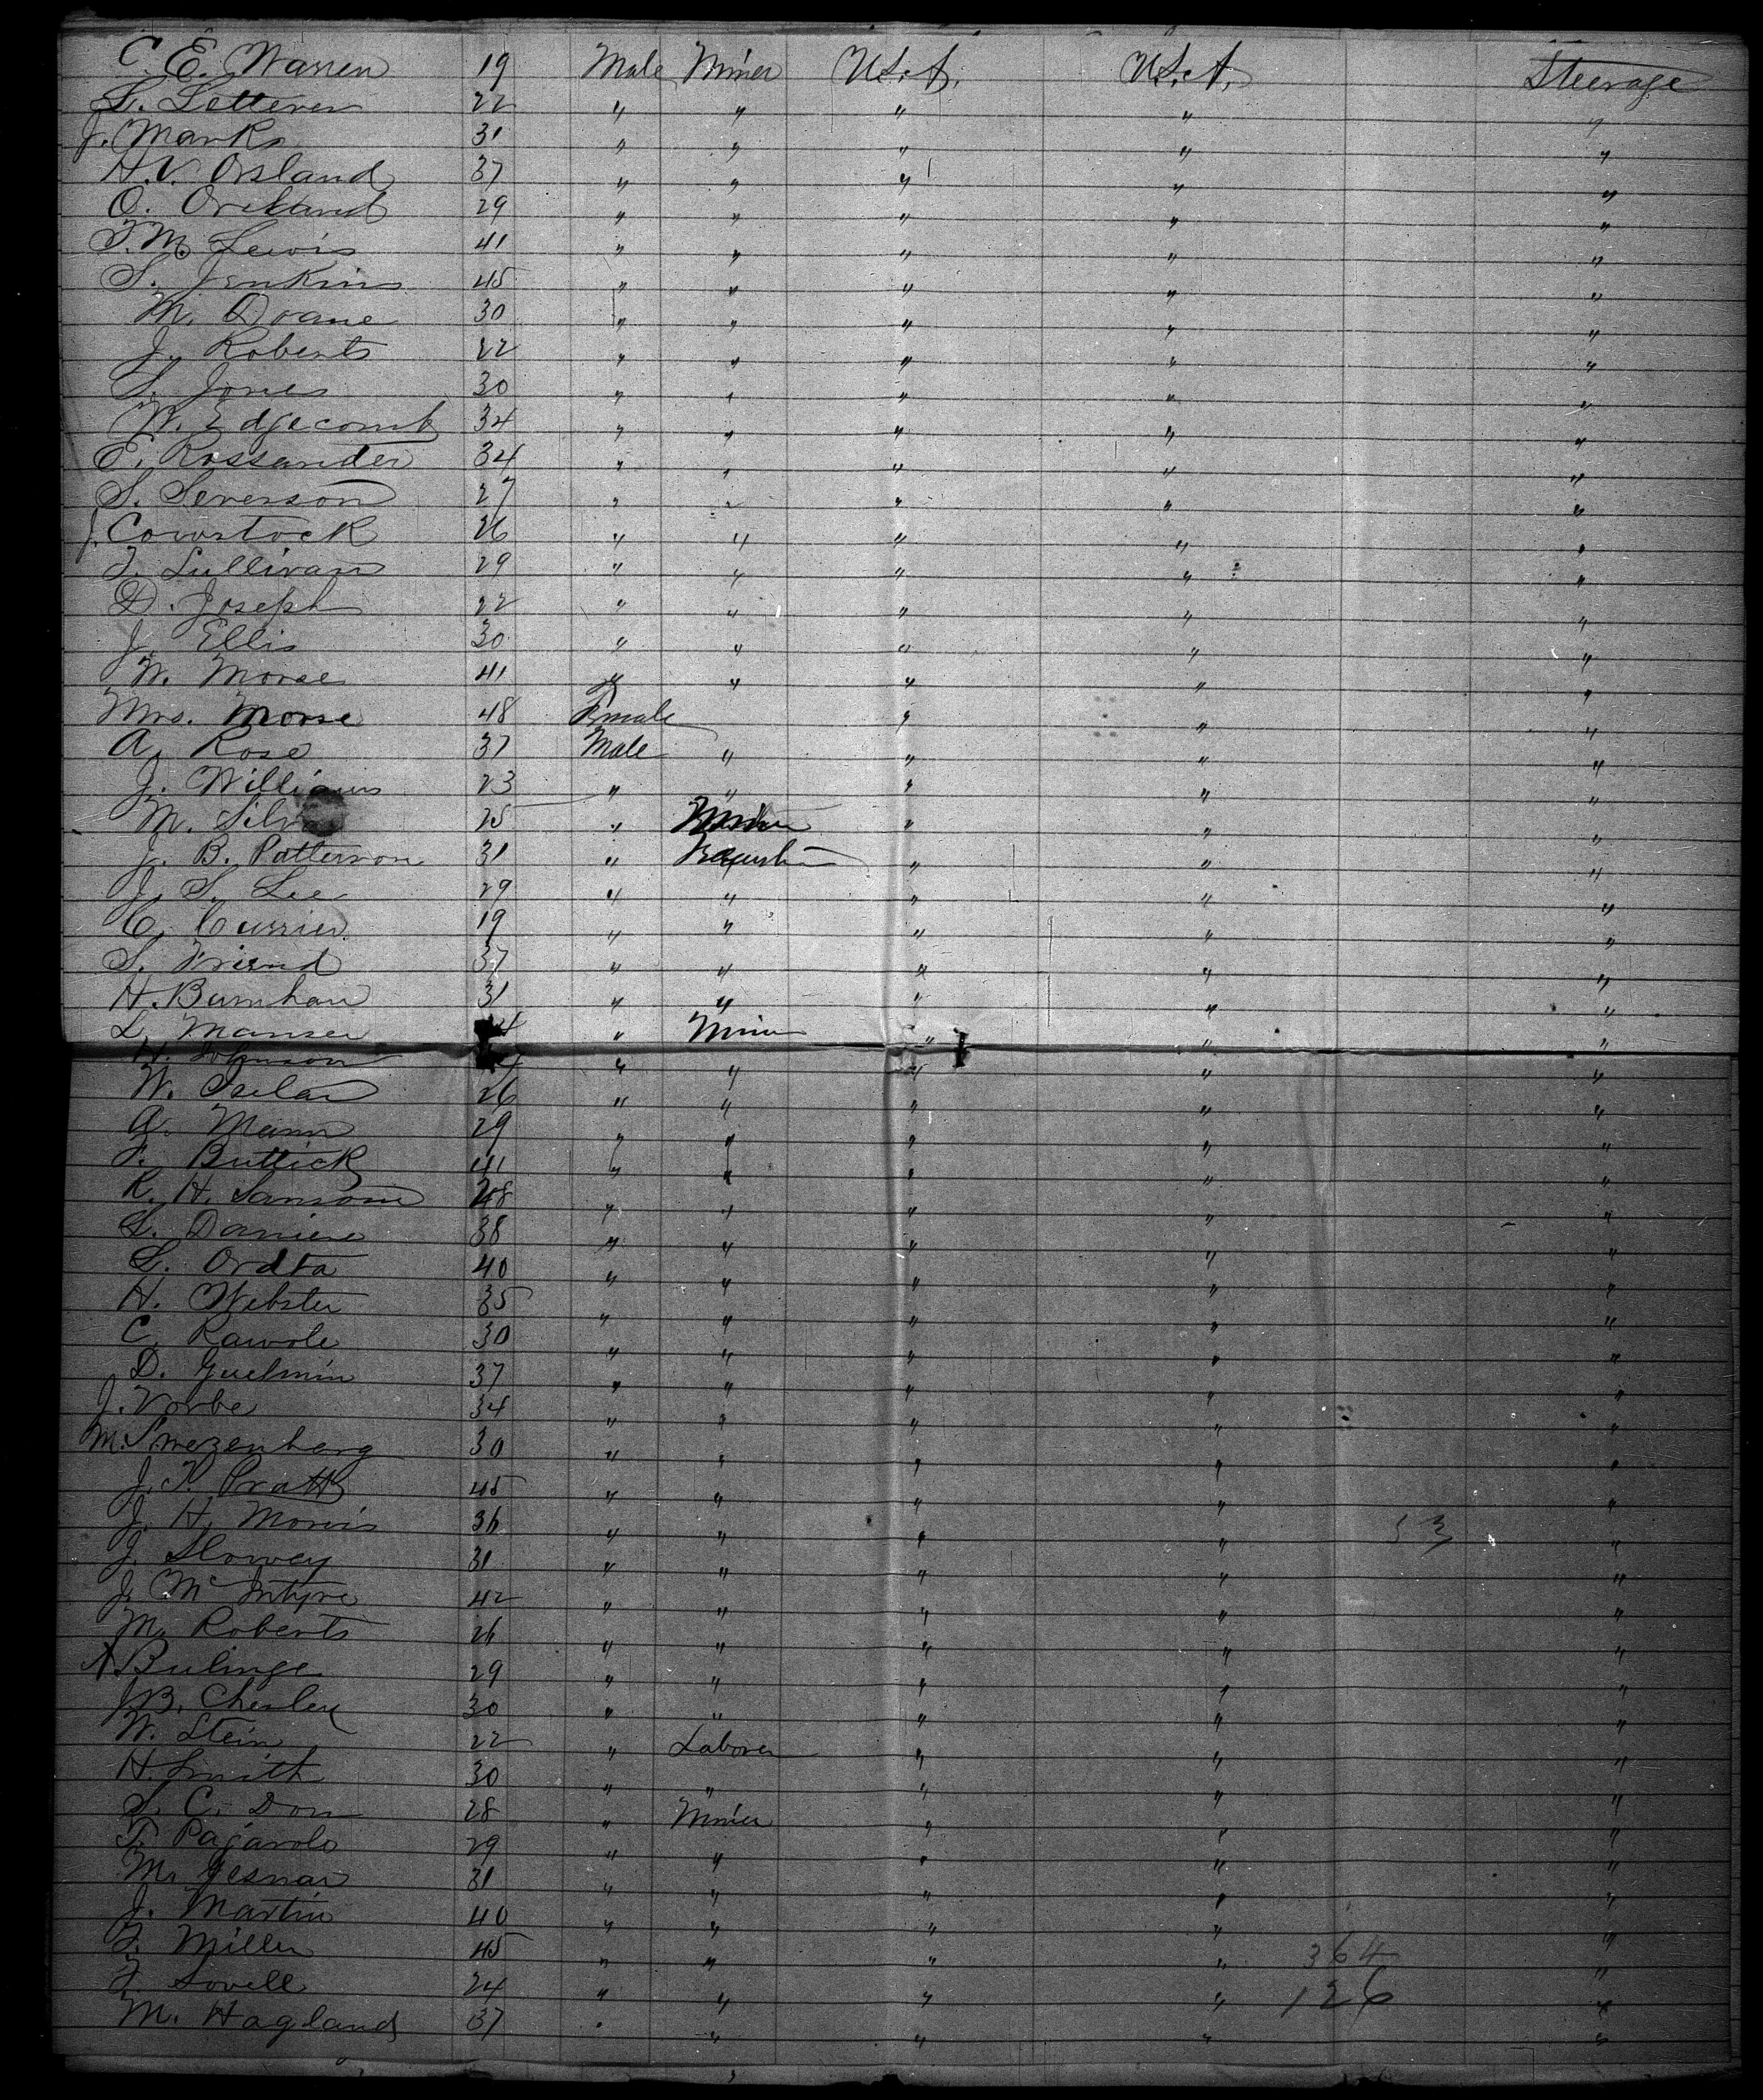 C. E. Warren 19 Male Miner U.S.A. U.S.A. Steerage
L. Letterer 22 " " " " "
J. Marks 31 " " " " "
H. V. Orsland 37 " " " " "
O. 29 " " " " "
T. M. Lewis 41 " " " " "
S. Jenkins 45 " " " " "
M. Doane 30 " " " " "
J. Roberts 22 " " " " "
S. Jones 30 " " " " "
W. Edgecomb 34 " " " " "
E. Rossander 34 " " " " "
S. Severson 27 " " " " "
J. Comstock 26 " " " " "
T. Sullivan 29 " " " " "
D. Joseph 22 " " " " "
J. Ellis 30 " " " " "
W. Morse 41 " " " " "
Mrs. Morse 48 Female " " "
A. Rose 37 Male " " " "
J. Williams 23 " " " " "
M. 25 " " " "
J. B. Patterson 31 " " " "
J. S. Lee 29 " " " " "
C. Currier 19 " " " " "
S. Friend 37 " " " " "
H. Burnham 31 " " " " "
L. Manser " Miner " " "
H. Johnson " " " " "
W. 26 " " " " "
A. Mann 29 " " " " "
F. Buttick 41 " " " " "
R. H. Sansom 48 " " " " "
L. 38 " " " " "
L. Ordta 40 " " " " "
H. Webster 35 " " " " "
C. Rawole 30 " " " " "
D. Guelmin 37 " " " " "
J. Vorbe 34 " " " " "
M. 30 " " " " "
J. T. Pratt 45 " " " " "
J. H. Morris 36 " " " " 53 "
J. Slowey 31 " " " " "
J. McIntyre 42 " " " " "
M. Roberts 26 " " " " "
A. Bulinge 29 " " " " "
J. B. Chesley 30 " " " " "
W. Stein 22 " Laborer " " "
H. Smith 30 " " " " "
S. C. Dorn 28 " Miner " " "
T. Pajarolo 29 " " " " "
M. Gesnar 31 " " " " "
J. Martin 40 " " " " "
T. Miller 45 " " " " 364 "
F. Lovell 24 " " " " 126 "
M. Hagland 37 " " " " "